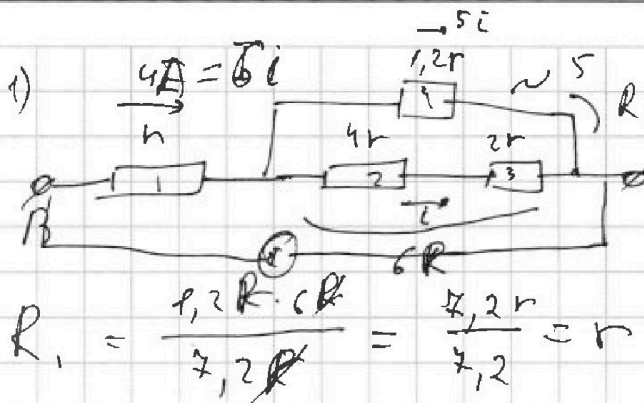 → 5i
1) 4A = 6i 1,2r ~ 5
r 4 4r 2r R
1 2 3
B i
6R
R₁ = 1,2R · 6R / 7,2R = 7,2r / 7,2 = r